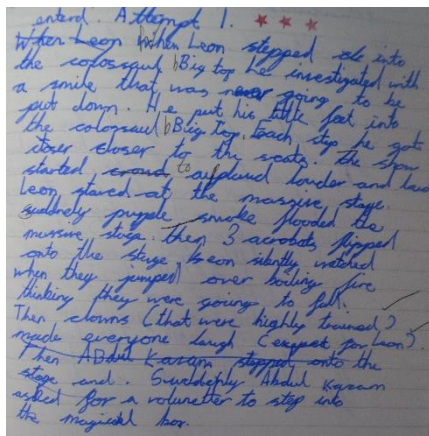 entend. Attempt 1.
When Leon When Leon stepped into
the colossaul Big top he investigated with
a smile that was never going to be
put down. He put his little feet into
the colossaul Big top, each step he got
closer to the seats. The show
started crowd to applaud louder and
Leon stared at the massive stage.
suddnely purple smoke flooded the
massive stage. Then 3 acrobats flipped
onto the stage Leon silently watched
when they jumped over boiling fire
thinking they were going to fall.
Then clowns (that were highly trained)
made everyone laugh (except for Leon).
Then Abdul Kazam stepped onto the
stage and. Sudd Abdul Kazam
asked for a volunetter to step into
the magical box.